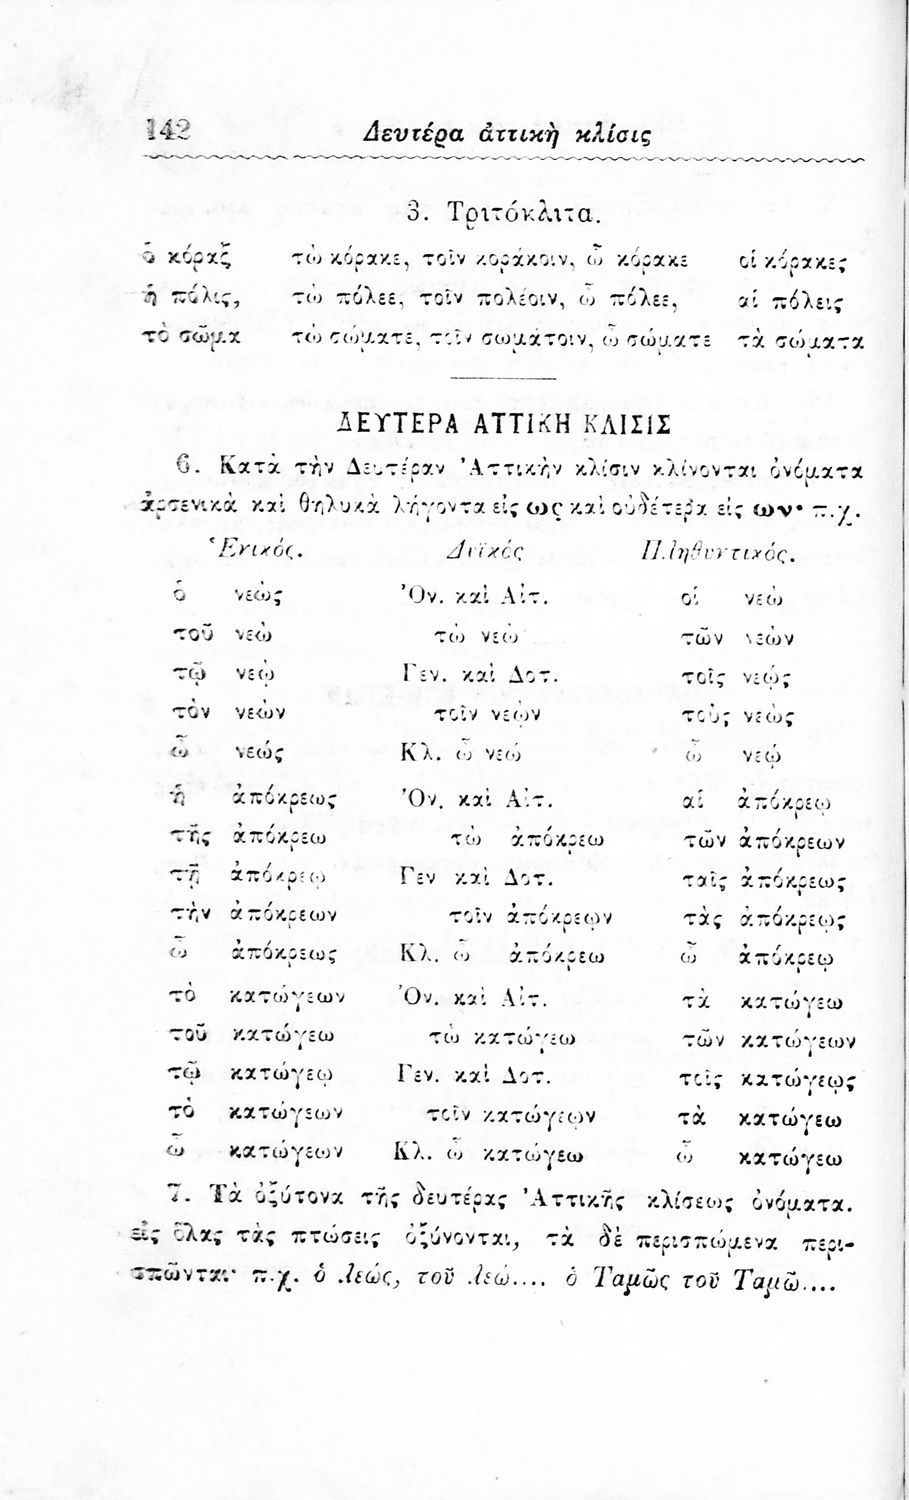 142 Δευτέρα ἀττικὴ κλίσις
3. Τριτόκλιτα.
ὁ κόραξ τὼ κόρακε, τοῖν κοράκοιν, ὦ κόρακε οἱ κόρακες
ἡ πόλις, τὼ πόλεε, τοῖν πολέοιν, ὦ πόλεε, αἱ πόλεις
τὸ σῶμα τὼ σώματε, τοῖν σωμάτοιν, ὦ σώματε τὰ σώματα
ΔΕΥΤΕΡΑ ΑΤΤΙΚΗ ΚΛΙΣΙΣ
6. Κατὰ τὴν Δευτέραν Ἀττικὴν κλίσιν κλίνονται ὀνόματα
ἀρσενικὰ καὶ θηλυκὰ λήγοντα εἰς ως καὶ οὐδέτερα εἰς ων· π.χ.
Ἑνικός. Δυϊκός Πληθυντικός.
ὁ νεὼς Ὀν. καὶ Αἰτ. οἱ νεῲ
τοῦ νεὼ τὼ νεὼ τῶν νεὼν
τῷ νεῲ Γεν. καὶ Δοτ. τοῖς νεῲς
τὸν νεὼν τοῖν νεῲν τοὺς νεὼς
ὦ νεώς Κλ. ὦ νεώ ὦ νεῴ
ἡ ἀπόκρεως Ὀν. καὶ Αἰτ. αἱ ἀπόκρεῳ
τῆς ἀπόκρεω τὼ ἀπόκρεω τῶν ἀπόκρεων
τῇ ἀπόκρεῳ Γεν καὶ Δοτ. ταῖς ἀπόκρεῳς
τὴν ἀπόκρεων τοῖν ἀπόκρεῳν τὰς ἀπόκρεως
ὦ ἀπόκρεως Κλ. ὦ ἀπόκρεω ὦ ἀπόκρεῳ
τὸ κατώγεων Ὀν. καὶ Αἰτ. τὰ κατώγεω
τοῦ κατώγεω τὼ κατώγεω τῶν κατώγεων
τῷ κατώγεῳ Γεν. καὶ Δοτ. τοῖς κατώγεῳς
τὸ κατώγεων τοῖν κατώγεῳν τὰ κατώγεω
ὦ κατώγεων Κλ. ὦ κατώγεω ὦ κατώγεω
7. Τὰ ὀξύτονα τῆς δευτέρας Ἀττικῆς κλίσεως ὀνόματα.
εἰς ὅλας τὰς πτώσεις ὀξύνονται, τὰ δὲ περισπώμενα περι-
σπῶνται· π.χ. ὁ λεώς, τοῦ λεώ.... ὁ Ταμῶς τοῦ Ταμῶ....